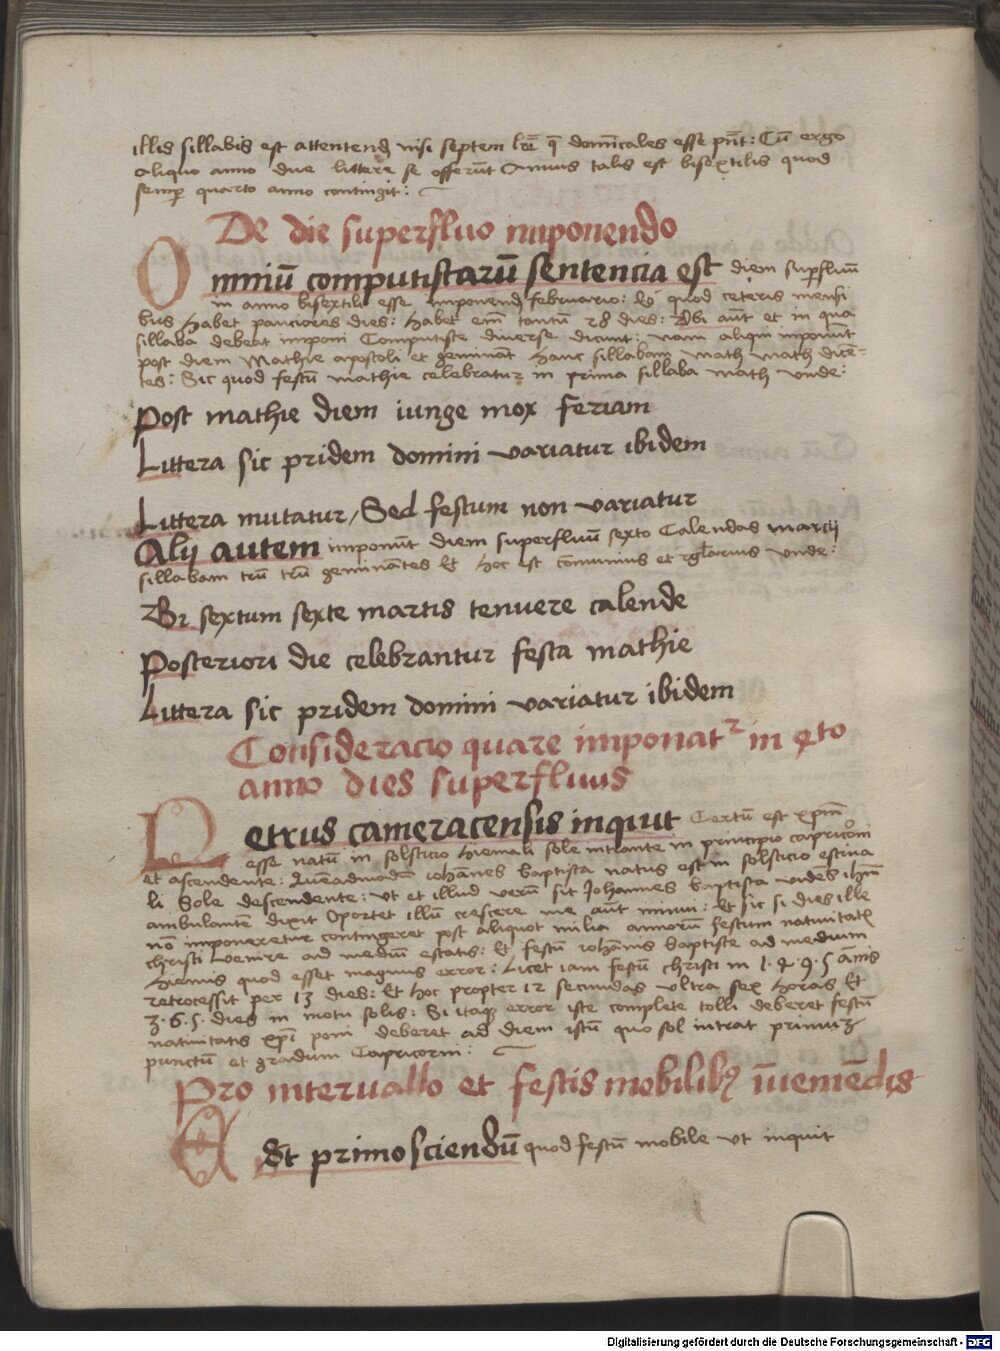 illis sillabis est attentend nisi septem lrē q̄ domīcales esse pn̄t: Cū ergo
aliquo anno due littere se offerūt Annus talis est bisextilis quod
semꝑ quarto anno contingit:
De die superfluo imponendo
Omniū computistarū sentencia est diem suꝑfluū
in anno bisextili esse imponend februario: Eo quod ceteris mensi
bus habet pauciores dies: habet em̄ tantū 28 dies: Vbi aūt et in qua
sillaba debeat imponi Computiste diuerse dicunt: nam aliqui inponūt
post diem Mathie apostoli et gemināt hanc sillabam math math dicē-
tes: Sic quod festū mathie celebratur in prima sillaba math vnde:
Post mathie diem iunge mox feriam
Littera sic pridem domini variatur ibidem
Littera mutatur / Sed festum non variatur
Alij autem imponūt diem superfluū sexto Calendas marcij
sillabam trū trū geminātes Et hoc est cōmunius et rglarius vnde:
Bi sextum sexte martis tenuere calende
Posteriori die celebrantur festa mathie
Littera sic pridem domini variatur ibidem
Consideracio quare imponatr in qrto
anno dies superfluus
Petrus cameracensis inquit Certū est xpm̄
esse natū in solsticio hiemali sole intrante in principio capricorni
et ascendente: Quēadmodū iohānes baptista natus est in solsticio estiua
li Sole descendente: vt et illud verū sit Johannes baptista videns ihm̄
ambulantē dixit Oportet illū crescere me aūt minui: Et sic si dies ille
nō imponeretur contingeret post aliquot milia annorū festum natiuitatꝭ
christi Venire ad mediū estatis: Et festū iohānis baptiste ad medium
hiemis quod esset magnus error: Licet iam festū christi in 1·4·9·5 ānis
retrocessit per 13 dies: Et hoc propter 12 secundas vltra sex horas Et
3·6·5· dies in motu solis: Si itaqꝫ error iste complete tolli deberet festū
natiuitatis xpī poni deberet ad diem istū quo sol intrat primuꝫ
punctū et gradum Capricorni:
Pro interuallo et festis mobilibꝫ īueniēdis
Est primo sciendū quod festū mobile vt inquit
Digitalisierung gefördert durch die Deutsche Forschungsgemeinschaft - DFG